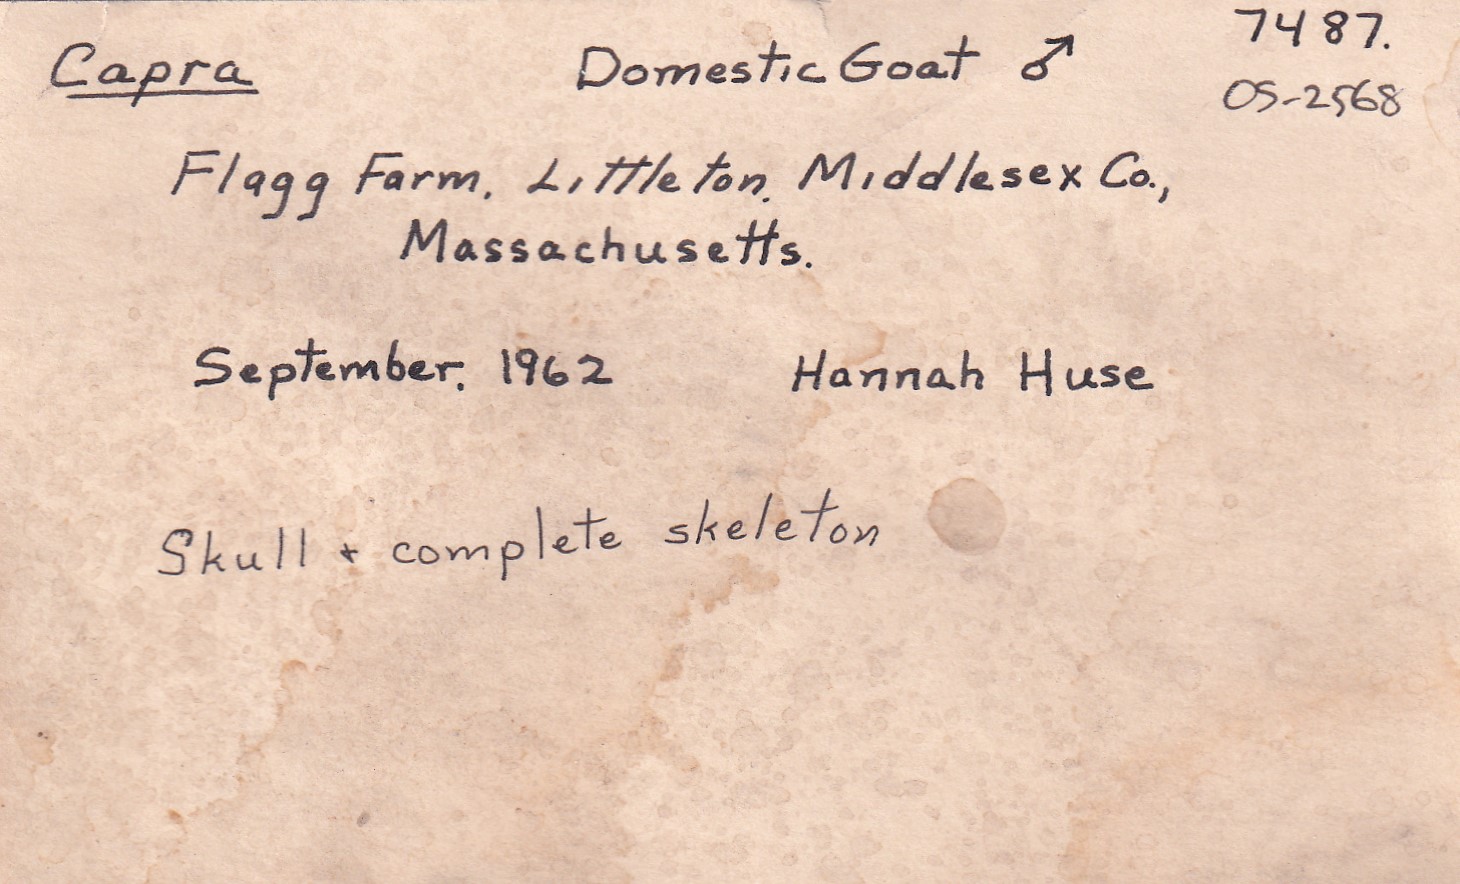 Capra Domestic Goat ♂ 7487.
OS-2568
Flagg Farm, Littleton, Middlesex Co.,
Massachusetts.
September, 1962 Hannah Huse
Skull + complete skeleton